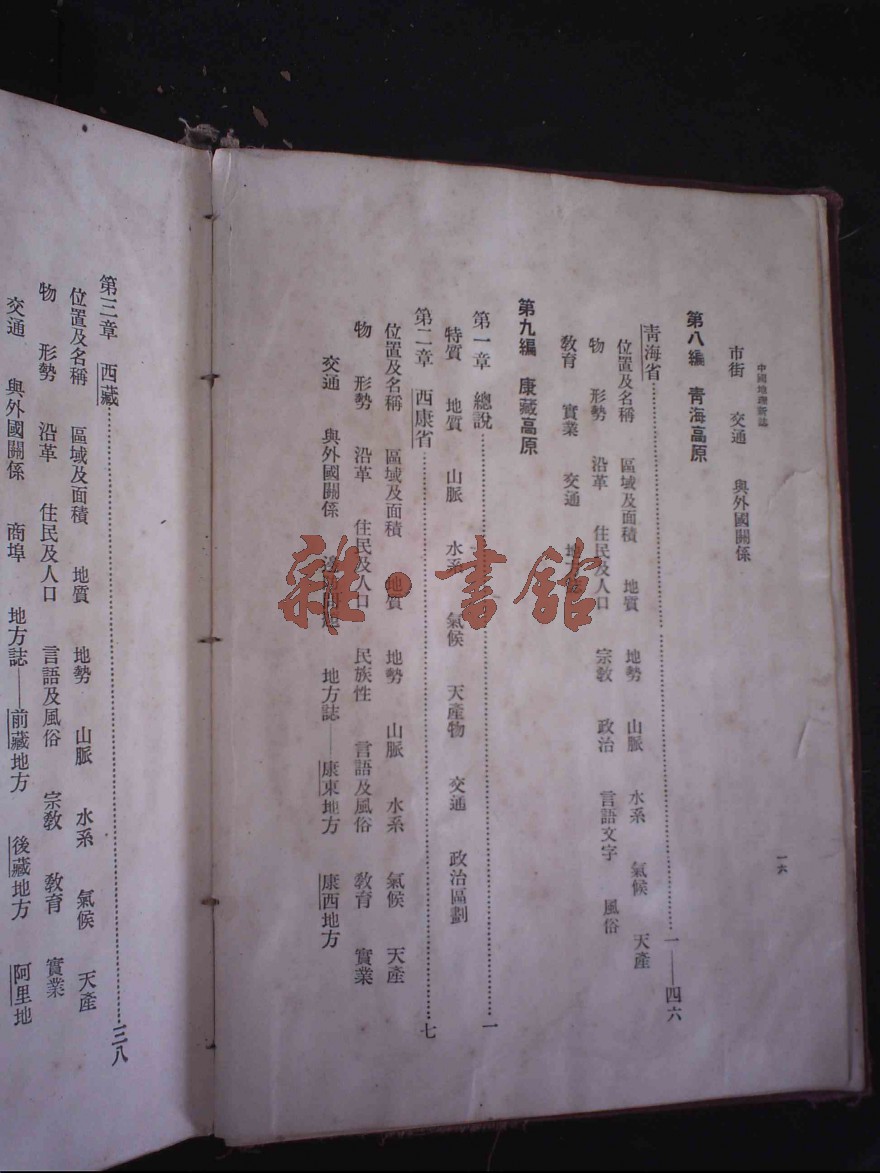 中國地理新誌
一六
市街 交通 與外國關係
第八編 青海高原
青海省……一——四六
位置及名稱 區域及面積 地質 地勢 山脈 水系 氣候 天產
物 形勢 沿革 住民及人口 宗教 政治 言語文字 風俗
教育 實業 交通 地方誌
第九編 康藏高原
第一章 總說……一
特質 地質 山脈 水系 氣候 天產物 交通 政治區劃
第二章 西康省……七
位置及名稱 區域及面積 地質 地勢 山脈 水系 氣候 天產
物 形勢 沿革 住民及人口 民族性 言語及風俗 教育 實業
交通 與外國關係 地方誌——康東地方 康西地方
第三章 西藏……三八
位置及名稱 區域及面積 地質 地勢 山脈 水系 氣候 天產
物 形勢 沿革 住民及人口 言語及風俗 宗教 教育 實業
交通 與外國關係 商埠 地方誌——前藏地方 後藏地方 阿里地
雜·書館